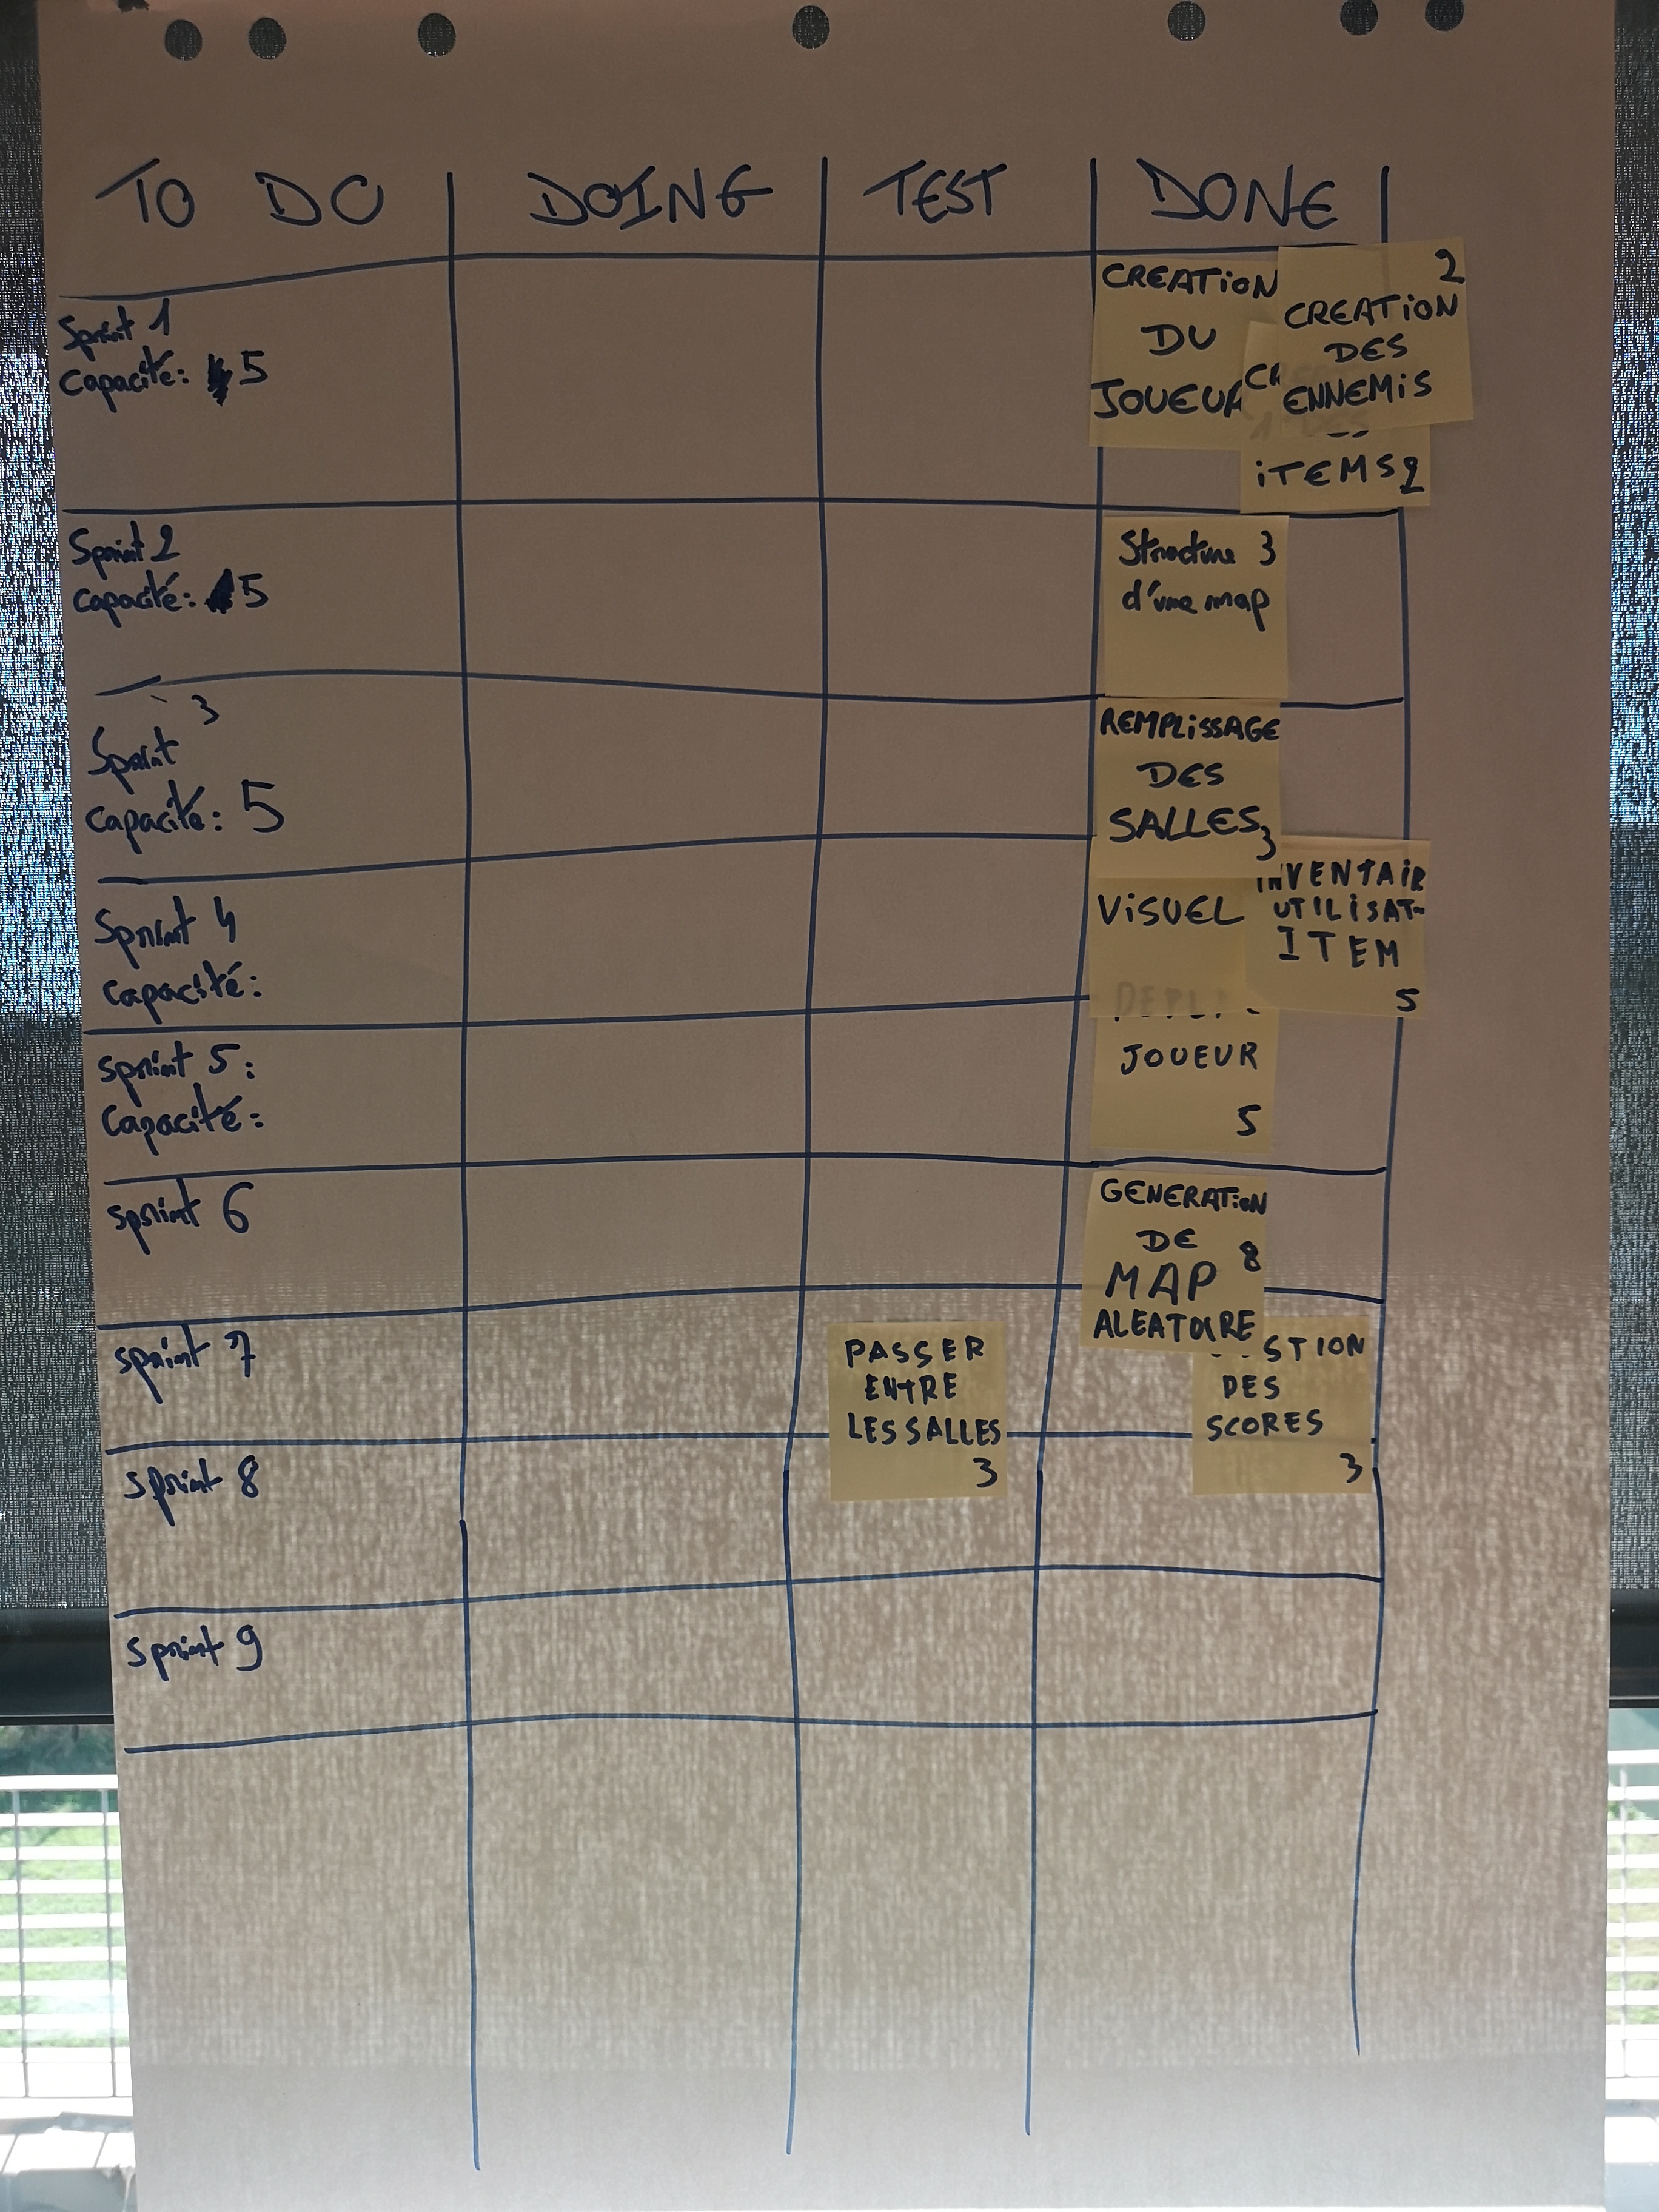 TO DO DOING TEST DONE
Sprint 1
Capacité: 5
CREATION
DU
JOUEUR
2
CREATION
DES
ENNEMIS
ITEMS 2
Sprint 2
Capacité: 5
Structure 3
d'une map
Sprint 3
Capacité: 5
REMPLISSAGE
DES
SALLES 3
Sprint 4
Capacité:
VISUEL
INVENTAIR
UTILISAT-
ITEM
5
Sprint 5:
Capacité:
JOUEUR
5
Sprint 6
GENERATION
DE 8
MAP
ALEATOIRE
Sprint 7
PASSER
ENTRE
LES SALLES
3
STION
DES
SCORES
3
Sprint 8
Sprint 9